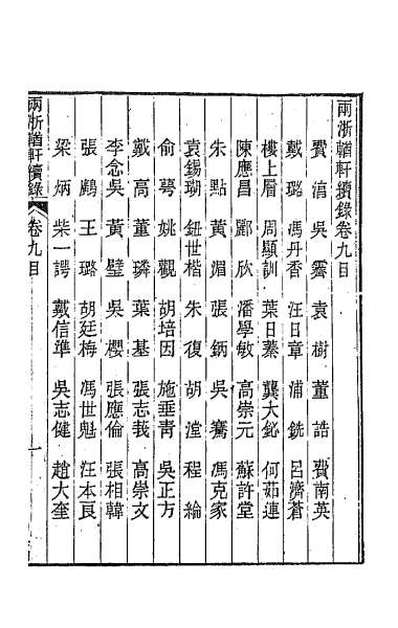 兩浙輶軒續錄卷九目
費淯 吳霽 袁樹 董誥 費南英
戴璐 馮丹香 汪日章 浦銑 呂濟蒼
樓上層 周顯訓 葉日蓁 龔大鈊 何茹連
陳應昌 酈欣 潘學敏 高崇元 蘇許堂
朱點 黃湄 張鈵 吳騫 馮克家
袁錫瑚 鈕世楷 朱復 胡瀅 程綸
俞萼 姚觀 胡培因 施垂青 吳正方
戴高 董璘 葉基 張志莪 高崇文
李念吳 黃璧 吳櫻 張應倫 張相韓
張鹧 王璐 胡廷梅 馮世魁 汪本艮
梁炳 柴一諤 戴信準 吳志健 趙大奎
兩浙輶軒續錄 卷九目 一